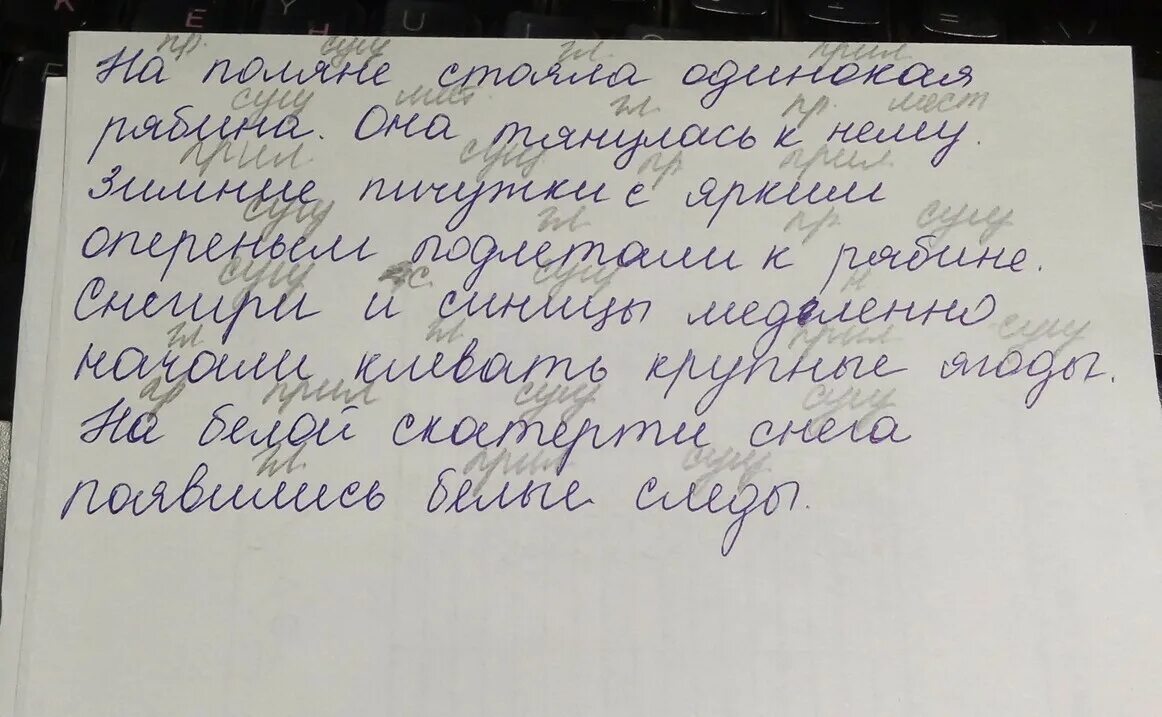 пр. сущ гл. прил
На поляне стояла одинокая
сущ мест. гл. пр. мест
рябина. Она тянулась к нему.
прил сущ пр. прил.
Зимние пичужки с ярким
сущ гл. пр. сущ
опереньем подлетали к рябине.
сущ с. сущ н
Снегири и синицы медленно
гл гл. прил сущ
начали клевать крупные ягоды.
пр прил сущ сущ
На белой скатерти снега
гл. прил сущ.
появились белые следы.